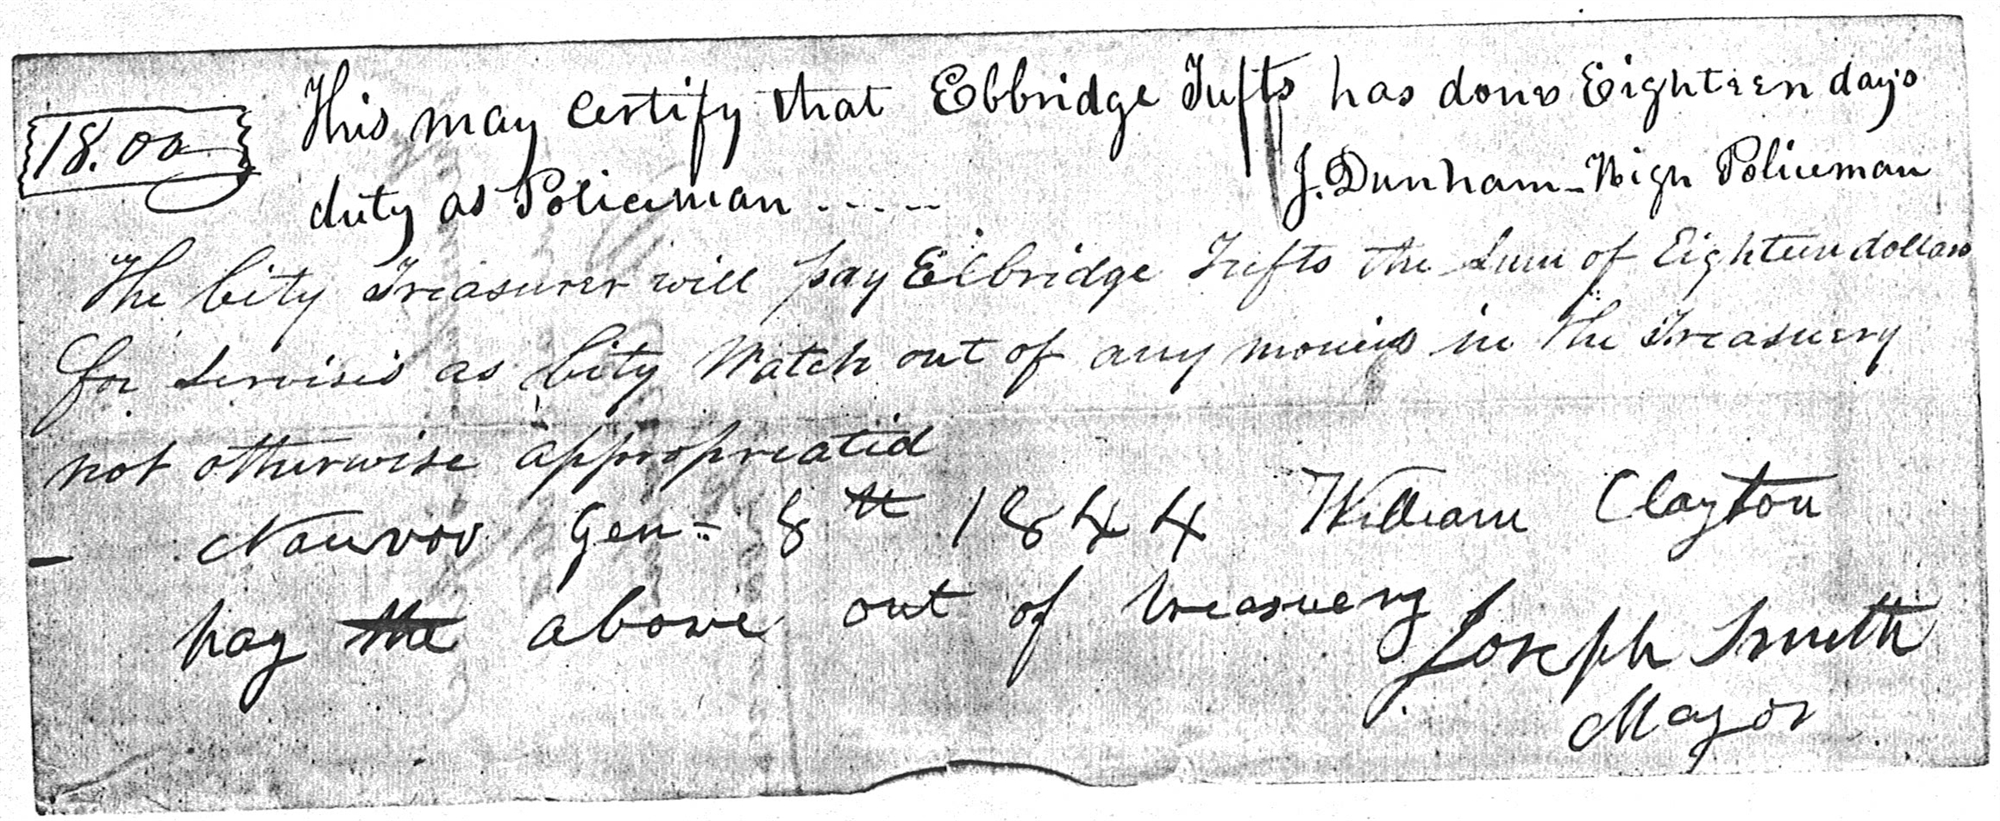 18.00
This may certify that Elbridge Tufts has done Eighteen days
duty as Policeman .....
J. Dunham - High Policeman
The City Treasurer will pay Elbridge Tufts the Sum of Eighteen dollars
for servises as City Watch out of any monies in the Treasuery
not otherwise appropreated
Nauvoo Gen= 8th 1844 William Clayton
pay the above out of treasuery
Joseph Smith
Mayor